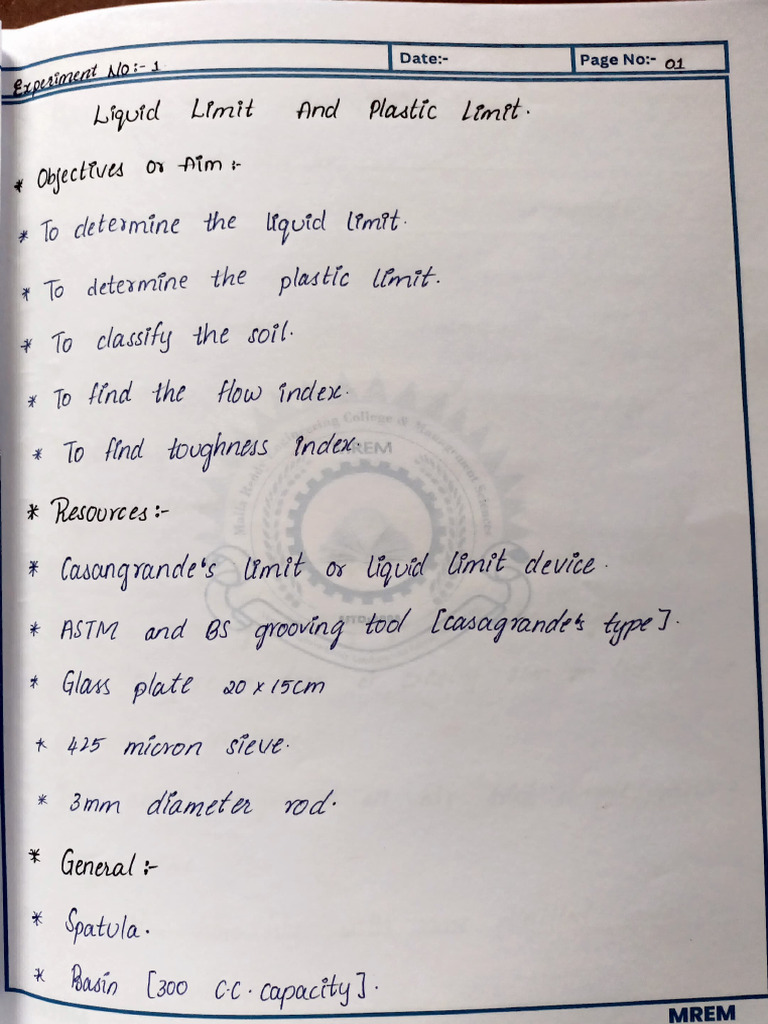 Experiment No:- 1
Date:-
Page No:- 01
Liquid Limit And Plastic Limit.
* Objectives or Aim :-
* To determine the liquid limit.
* To determine the plastic limit.
* To classify the soil.
* To find the flow index.
* To find toughness index.
* Resources :-
* Casangrande's limit or liquid limit device.
* ASTM and BS grooving tool [casagrande's type].
* Glass plate 20 x 15cm
* 425 micron sieve.
* 3mm diameter rod.
* General :-
* Spatula.
* Basin [300 C.C. capacity].
MREM